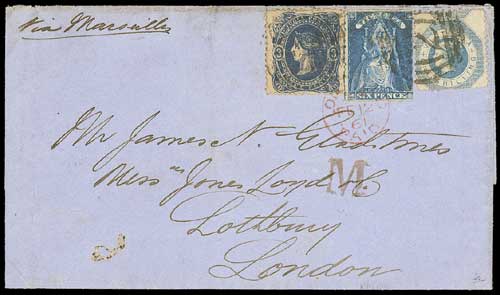 via Marseilles
SIX PENCE
PAID
Mr James N. Gladstones
Mess rs Jones Loyd & Co
M
Lothbury
London